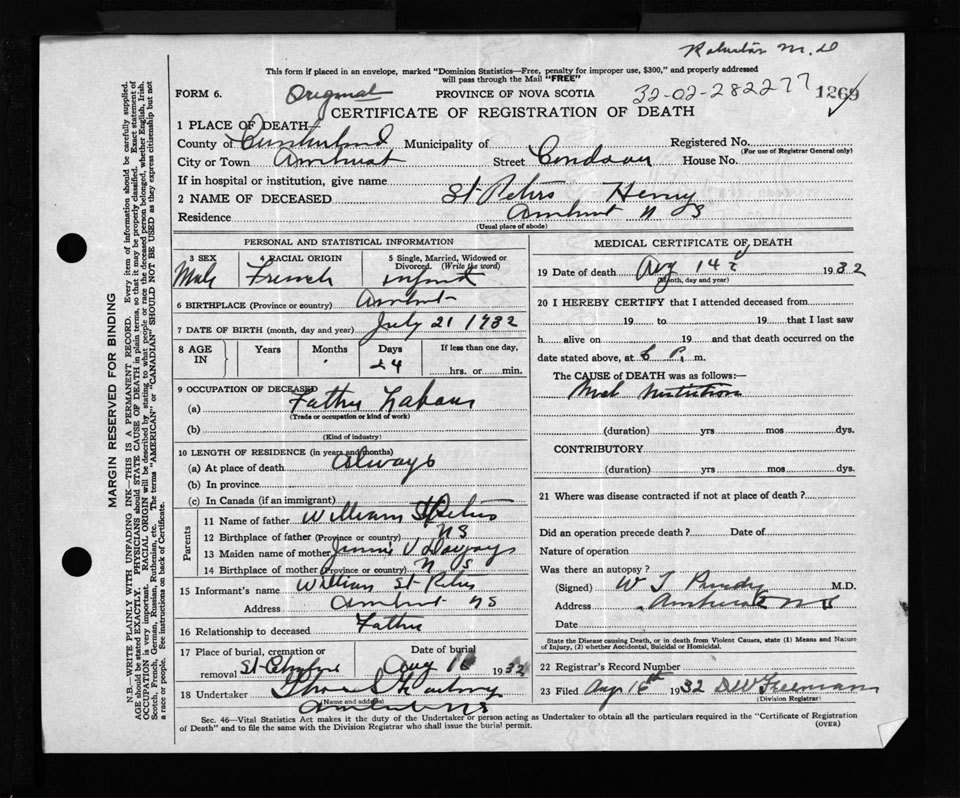 M.D
This form if placed in an envelope, marked "Dominion Statistics—Free, penalty for improper use, $300," and properly addressed
will pass through the Mail "FREE"
FORM 6. Original PROVINCE OF NOVA SCOTIA 32-02-282277 1269
CERTIFICATE OF REGISTRATION OF DEATH
1 PLACE OF DEATH
County of Cumberland Municipality of Registered No.
(For use of Registrar General only)
City or Town Amherst Street House No.
If in hospital or institution, give name
2 NAME OF DECEASED St Peters Henry
Residence Amherst N S
(Usual place of abode)
PERSONAL AND STATISTICAL INFORMATION
3 SEX 4 RACIAL ORIGIN 5 Single, Married, Widowed or
Divorced. (Write the word)
Male French infant
6 BIRTHPLACE (Province or country) Amherst
7 DATE OF BIRTH (month, day and year) July 21 1932
8 AGE IN Years Months Days If less than one day,
24 hrs. or min.
9 OCCUPATION OF DECEASED
(a) Father Labour
(Trade or occupation or kind of work)
(b)
(Kind of industry)
10 LENGTH OF RESIDENCE (in years and months)
(a) At place of death always
(b) In province
(c) In Canada (if an immigrant)
Parents
11 Name of father William St Peters
12 Birthplace of father (Province or country) N S
13 Maiden name of mother Jennie V
14 Birthplace of mother (Province or country) N S
15 Informant's name William St Peters
Address Amherst NS
16 Relationship to deceased Father
17 Place of burial, cremation or Date of burial
removal Aug 16 1932
18 Undertaker
(Name and address)
Amherst NS
MEDICAL CERTIFICATE OF DEATH
19 Date of death Aug 14 1932
(Month, day and year)
20 I HEREBY CERTIFY that I attended deceased from
19 to 19 that I last saw
h alive on 19 and that death occurred on the
date stated above, at 6 P. m.
The CAUSE of DEATH was as follows:—
Mal Nutrition
(duration) yrs mos dys.
CONTRIBUTORY
(duration) yrs mos dys.
21 Where was disease contracted if not at place of death?
Did an operation precede death? Date of
Nature of operation
Was there an autopsy?
(Signed) W T Purdy M.D.
Address Amherst N S
Date
State the Disease causing Death, or in death from Violent Causes, state (1) Means and Nature
of Injury, (2) whether Accidental, Suicidal or Homicidal.
22 Registrar's Record Number
23 Filed Aug 16th 1932 DW Freeman
(Division Registrar)
Sec. 46—Vital Statistics Act makes it the duty of the Undertaker or person acting as Undertaker to obtain all the particulars required in the "Certificate of Registration
of Death" and to file the same with the Division Registrar who shall issue the burial permit. (OVER)
MARGIN RESERVED FOR BINDING
N.B.—WRITE PLAINLY WITH UNFADING INK—THIS IS A PERMANENT RECORD. Every item of information should be carefully supplied.
AGE should be stated EXACTLY. PHYSICIANS should STATE CAUSE OF DEATH in plain terms, so that it may be properly classified. Exact statement of
OCCUPATION is very important. RACIAL ORIGIN will be described by stating to what people or race the deceased person belonged, whether English, Irish,
Scotch, French, German, Russian, Ruthenian, etc. The terms "AMERICAN" or "CANADIAN" SHOULD NOT BE USED as they express citizenship but not
a race or people. See instructions on back of Certificate.